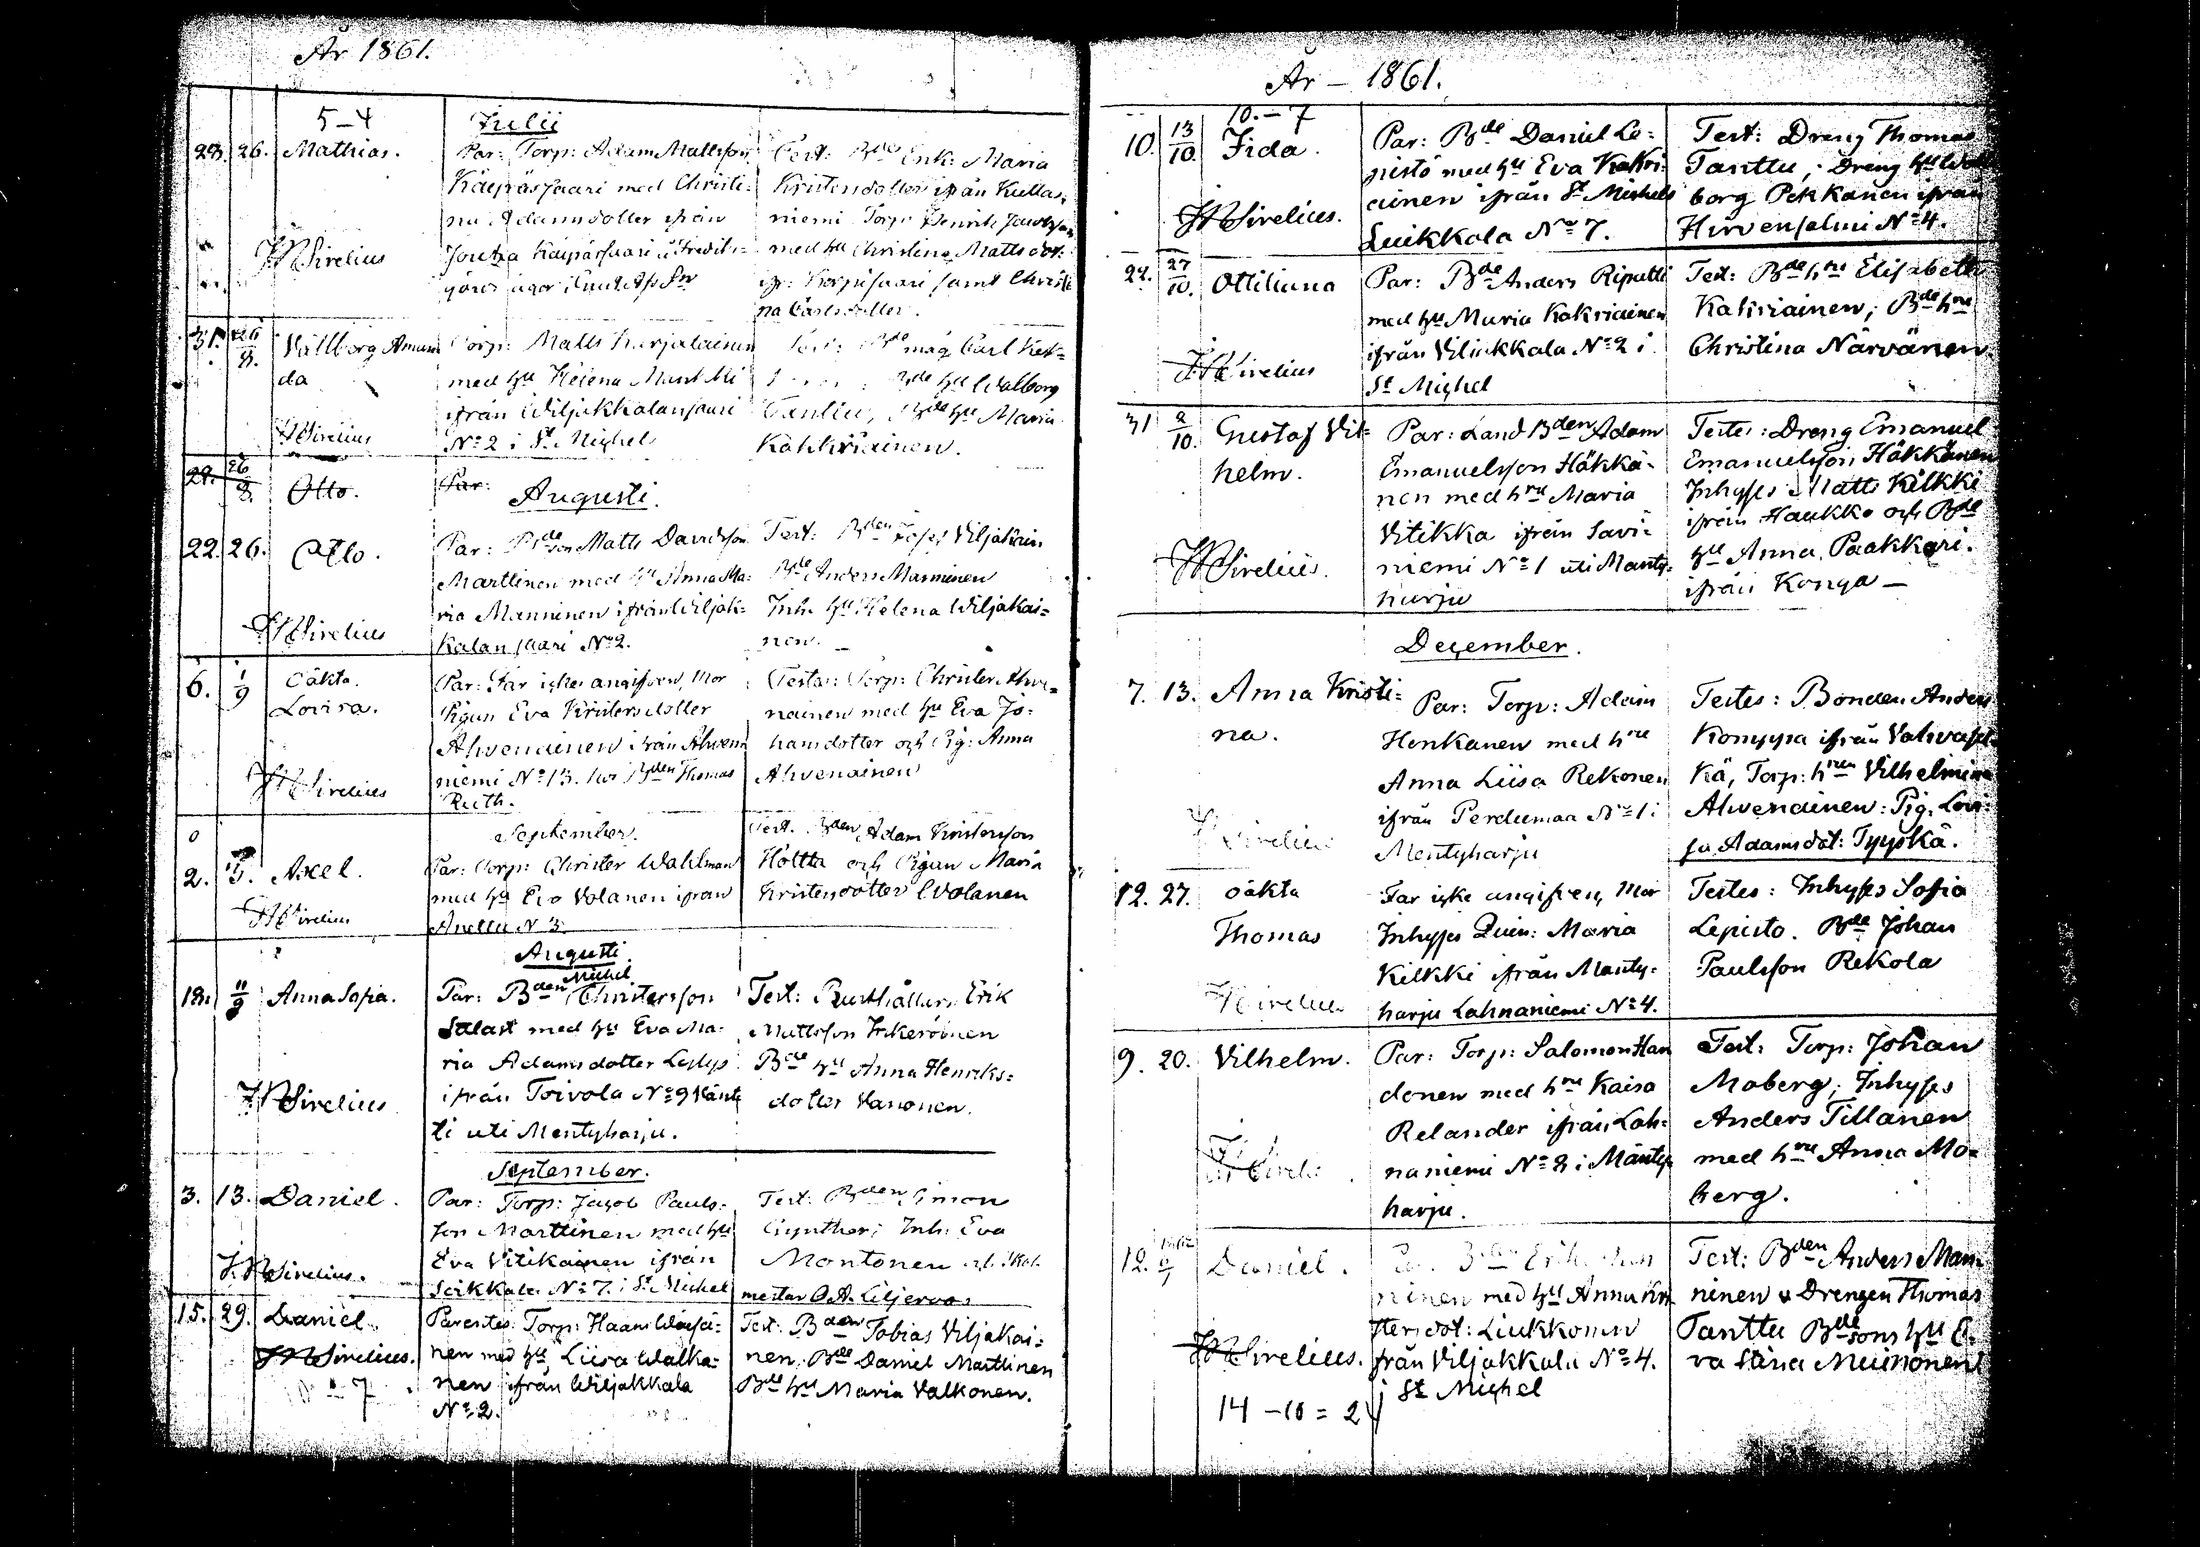 År 1861.
5–4
Julii
23. 26. Mathias.
Par: Torp: Adam Mattsson
Käspäsaari med Christi=
na Adamsdotter ifrån
Joutsa Käspäsaari
JWSirelius
Test: Bde Enk: Maria
Kristersdotter ifrån Kullas-
niemi Torp: Henrik Jacobsson
med hu Christina Mattsdot:
ifr: Korpisaari samt Christi
na Carlsdotter.
31. 26/8. Vallborg Aman
da
JWSirelius
Torp: Matts Karjalainen
med hu Helena Manttu
ifrån Wiljakkalansaari
No 2 i St Michel
Test: Bde måg Carl
Bde hu Walborg
Tanttu, Bde hu Maria
Kahkriainen.
22. 26/8. Otto.
Par:
Augusti.
22. 26. Otto.
JWSirelius
Par: Bdeson Matts Davidsson
Marttinen med hu Anna Ma:
ria Manninen ifrån Wiljak=
kalansaari No 2.
Test: Bden Josef Viljakain
Bde Anders Manninen
Inh. hu Helena Wiljakai=
nen. –
6. 1/9 Oäkta.
Lovisa.
JWSirelius
Par: Far icke angifven, Mor
Pigan Eva Kristersdotter
Ahvenainen ifrån Ahven
niemi No 13. hos Bden Thomas
Ruth.
Testes: Torp: Christer Ahve=
nainen med hu Eva Jo=
hansdotter och Pig: Anna
Ahvenainen
September.
2. 5. Axel.
JWSirelius
Par: Torp: Christer Wahlman
med hu Eva Volanen ifrån
Anttu No 3.
Test. Bden Adam Kristersson
Höltta och Pigan Maria
Kristersdotter Wolanen
Augusti.
18. 11/9 Anna Sofia.
JWSirelius
Par: Bden Michel Christersson
Salast med hu Eva Ma:
ria Adamsdotter
ifrån Toivola No 9 Känt
ti uti Mentyharju.
Test: Rusthållern Erik
Mattsson Inkeröinen
Bde hu Anna Henriks=
dotter Vanonen.
September.
3. 13. Daniel.
J.WSirelius.
Par: Torp: Jacob Pauls=
son Marttinen med hu
Eva Vitikainen ifrån
Seikkala No 7. i St Michel
Test: Bden Simon
Gynther; Inh. Eva
Montonen och Skol
mestar O.A. Liljeroos
15. 29. Daniel.
JWSirelius.
10 – 7
Parentes: Torp: Haans
nen med hu Liisa Walka=
nen ifrån Wiljakkala
No 2.
Test: Bden Tobias Viljakai=
nen, Bde Daniel Marttinen
Bde hu Maria Valkonen.
År – 1861.
10. – 7
10. 13/10. Fida.
JWSirelius.
Par: Bde Daniel Le=
pistö med hu Eva Kakri=
ainen ifrån St Michels
Luikkala No 7.
Test: Dreng Thomas
Tanttu; Dreng hu Wal
borg Pekkanen ifrån
Hirvensalmi No 4.
22. 27/10. Ottiliana
J.WSirelius
Par: Bde Anders Ripatti
med hu Maria Kakriainen
ifrån Viliakkala No 2 i
St Michel
Test: Bde hru Elisabeth
Kakriainen; Bde hru
Christina Närvänen.
31 2/10. Gustaf Vil=
helm.
JWSirelius.
Par: Land Bden Adam
Emanuelsson Häkkä=
nen med hru Maria
Vitikka ifrån Savi=
niemi No 1 uti Manty=
hurju
Testes: Dreng Emanuel
Emanuelsson Häkkänen
Inhyses Matts Kilkki
ifrån Haukka och Bde
hu Anna Paakkari.
ifrån Konga –
December.
7. 13. Anna Kristi=
na.
Sirelius
Par: Torp: Adam
Henkanen med hru
Anna Liisa Rekonen
ifrån Perdumaa No 1 i
Mentyharju
Testes: Bonden Anders
Komppa ifrån Vahvasel
kä, Torp: hrun Vilhelmina
Ahvenainen: Pig. Lovi=
sa Adamsdot: Tyyskä.
12. 27. oäkta
Thomas
Sirelius
Far icke angifven, Mor
Inhyses Qvin: Maria
Kilkki ifrån Manty=
harju Lahnaniemi No 4.
Testes: Inhyses Sofia
Lepisto. Bde Johan
Paulsson Rekola
9. 20. Vilhelm.
Par: Torp: Salomon Han
donen med hru Kaisa
Relander ifrån Lah=
naniemi No 2 i Mänty
harju.
Test: Torp: Johan
Moberg; Inhyses
Anders Tillanen
med hru Anna Mo=
berg.
12. Daniel.
JWSirelius.
14 – 10 = 24
Erik
ninen med hu Anna Kri
stersdot: Liukkonen
från Viljakkala No 4.
i St Michel
Test: Bden Anders Man
ninen & Drengen Thomas
Tanttu Bdesons hu E=
va Stina Muinonen